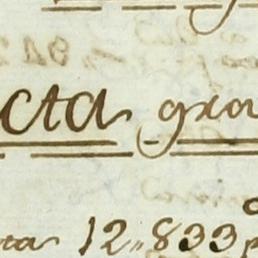 cta gra
ra 12,,833